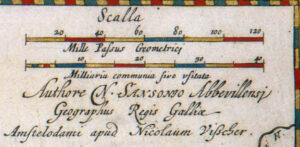 Scalla
20 40 60 80 100 120
Mille Passus Geometrici
10 20 30 40
Milliaria communia sive usitata
Authore N. SANSONIO Abbevillensi
Geographus Regis Galliæ
Amstelodami apud Nicolaum Visscher.